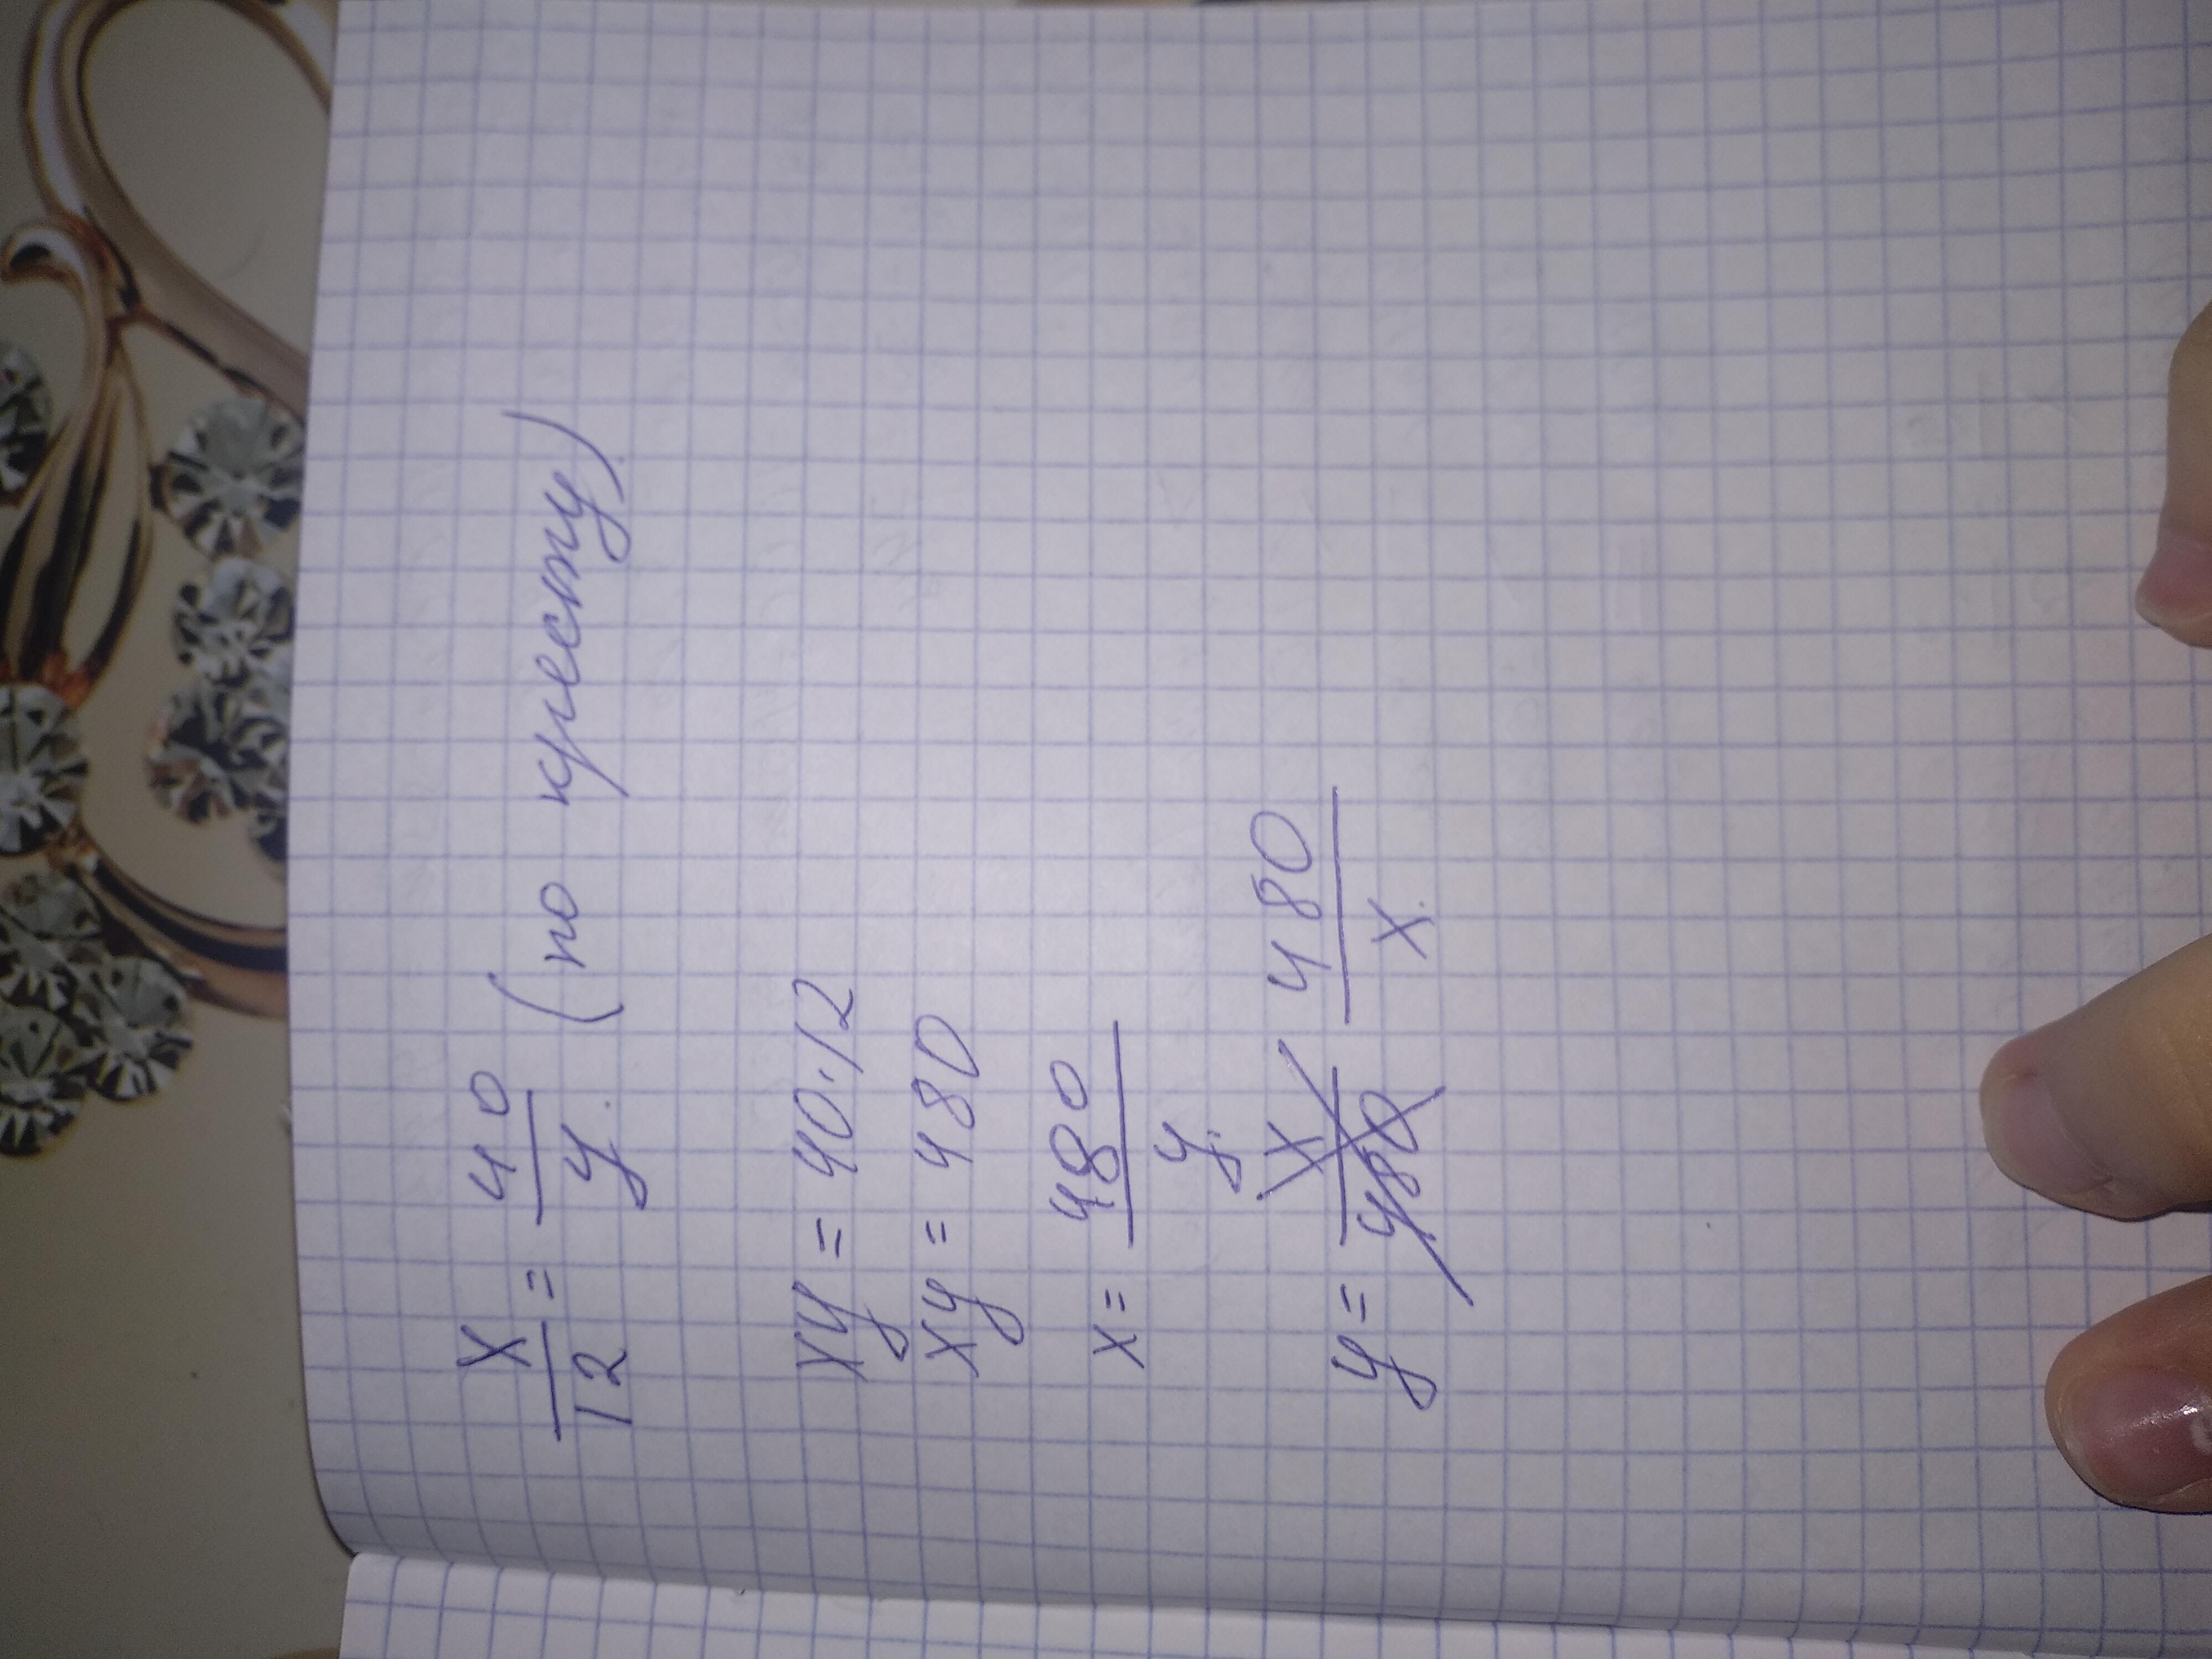 x/12 = 40/y. (по кресту)
xy = 40·12
xy = 480
x = 480/y.
y = x/480 480/x.